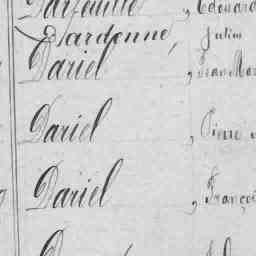 Darfeuille, Edouard
Dardenne, Julien
Dariel, Jean Mar
Dariel, Pierre
Dariel, Françoi